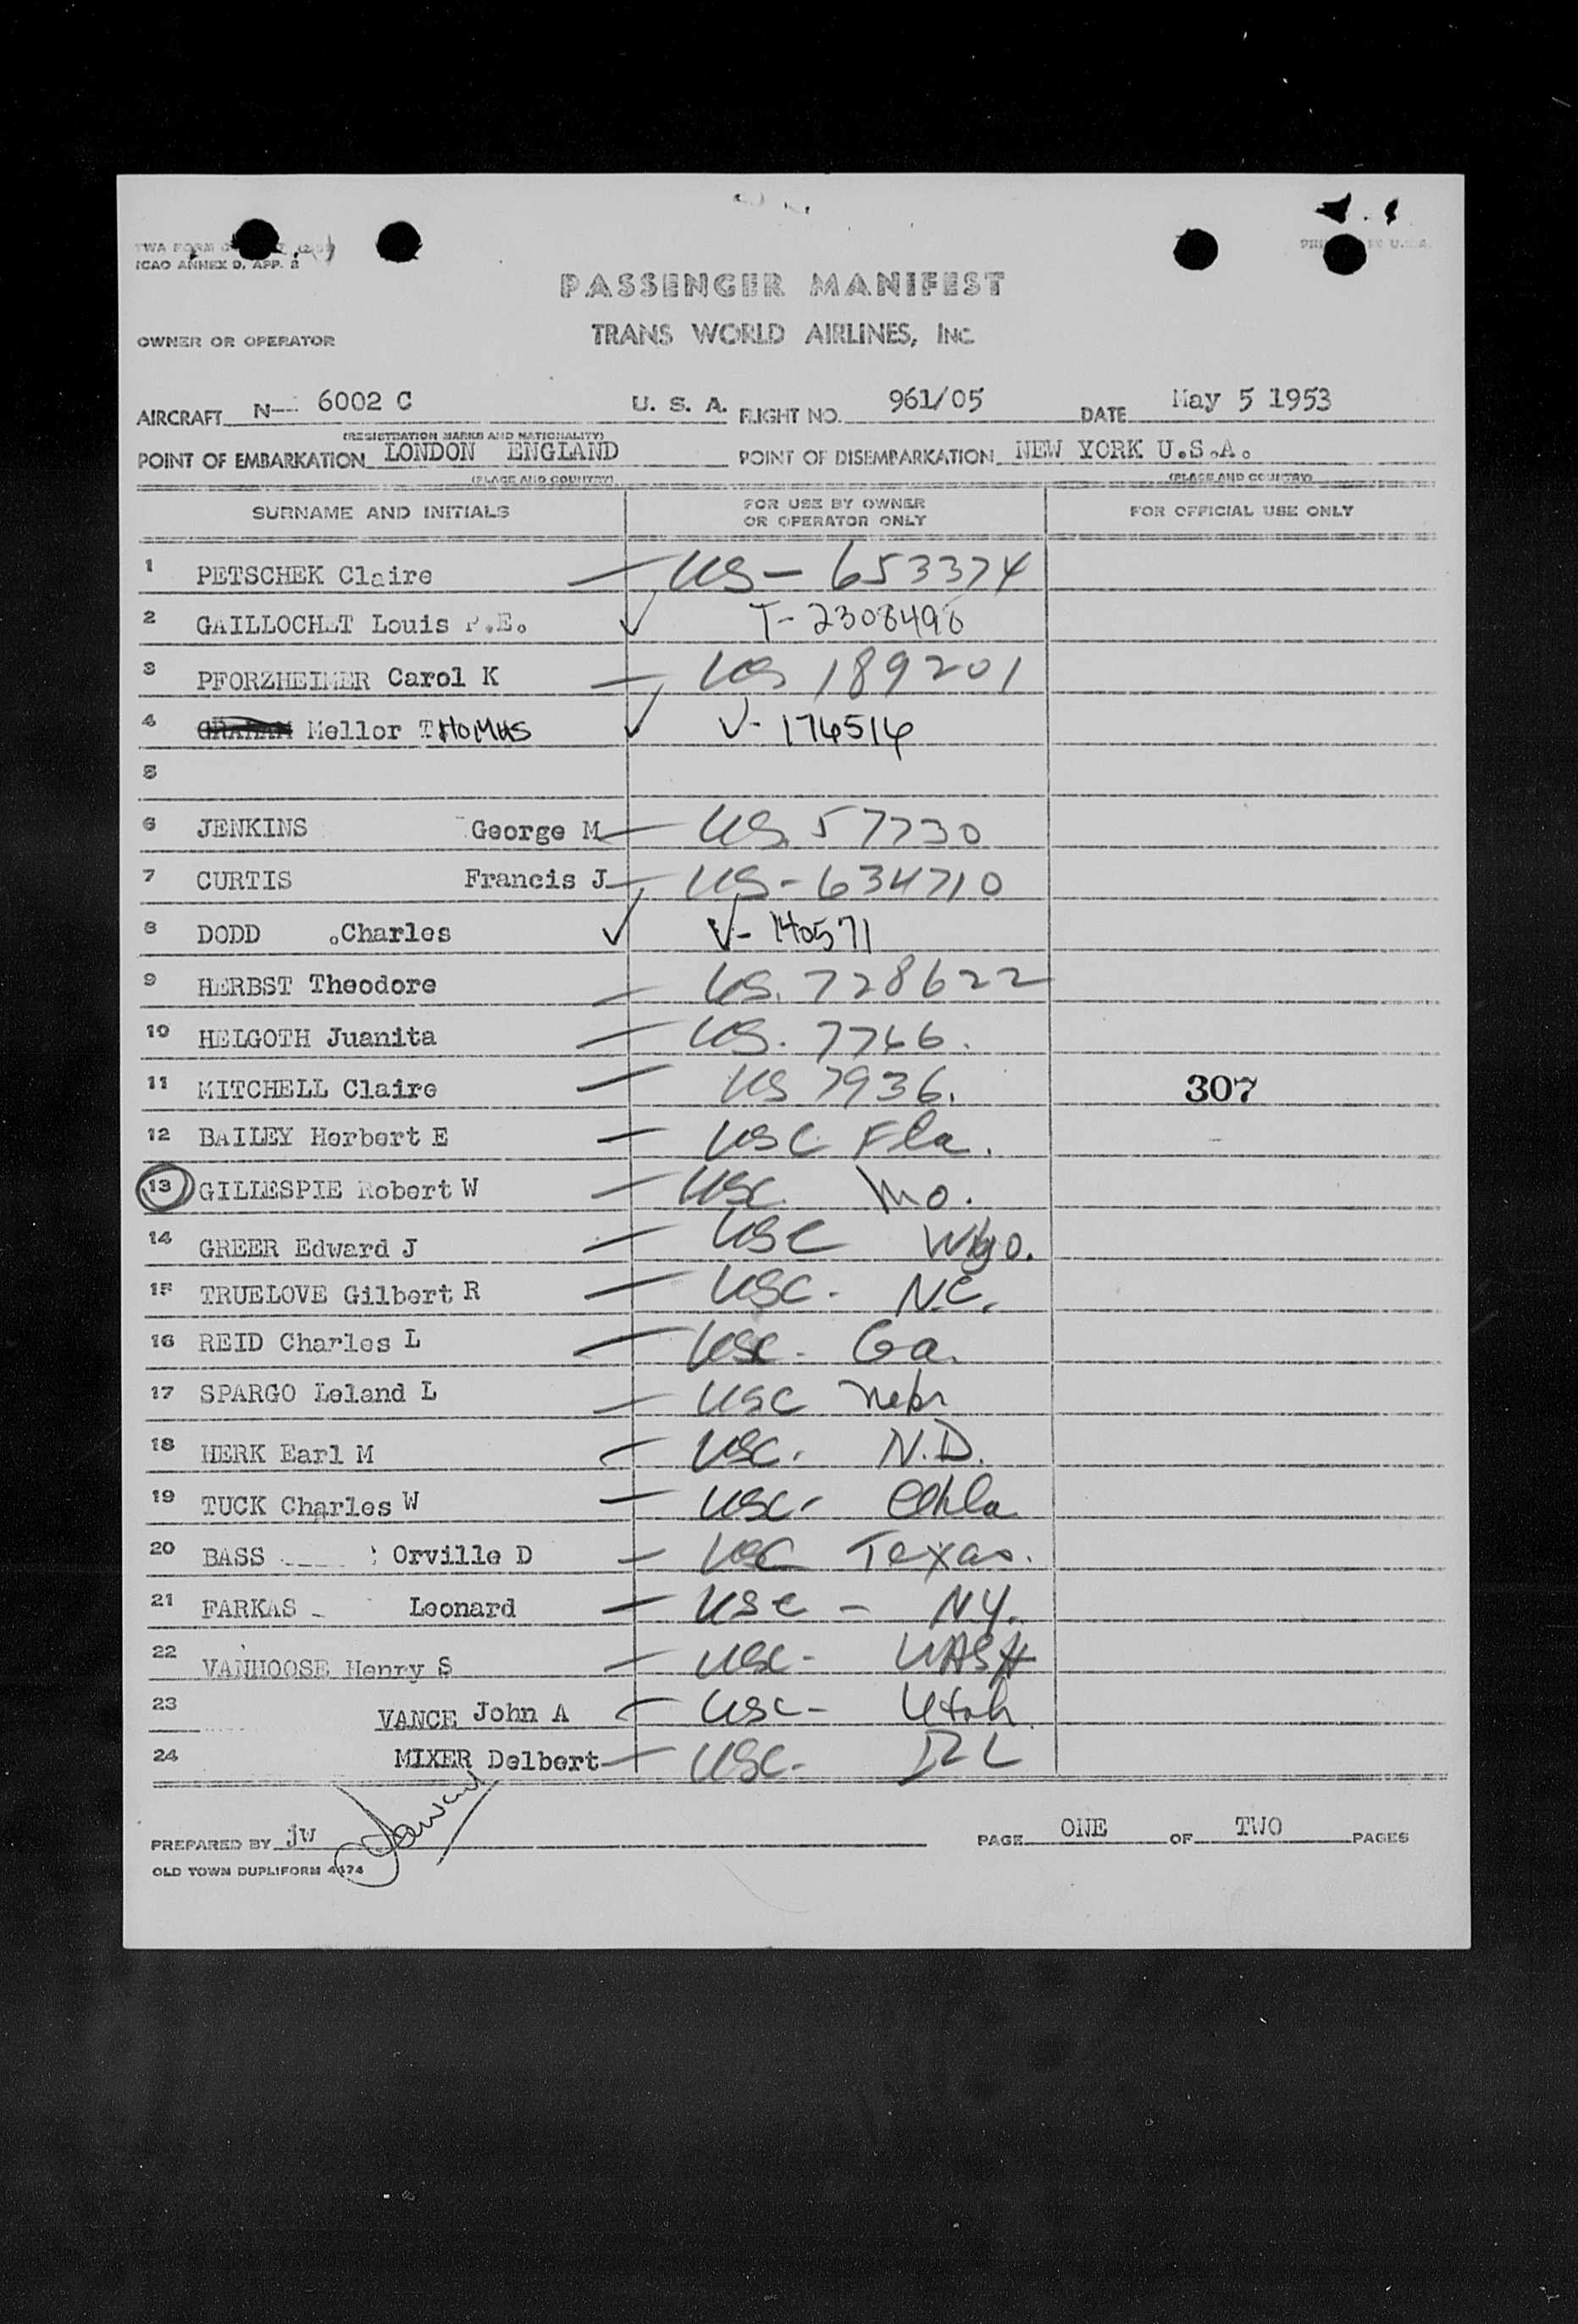 TWA FORM
ICAO ANNEX 9, APP. 2
PASSENGER MANIFEST
OWNER OR OPERATOR TRANS WORLD AIRLINES, INC.
AIRCRAFT N- 6002 C U. S. A. FLIGHT NO. 961/05 DATE May 5 1953
(REGISTRATION MARKS AND NATIONALITY)
POINT OF EMBARKATION LONDON ENGLAND POINT OF DISEMBARKATION NEW YORK U.S.A.
(PLACE AND COUNTRY) (PLACE AND COUNTRY)
SURNAME AND INITIALS FOR USE BY OWNER OR OPERATOR ONLY FOR OFFICIAL USE ONLY
1 PETSCHEK Claire — US - 653374
2 GAILLOCHET Louis P.E. ✓ T-2308498
3 PFORZHEIMER Carol K — US 189201
4 GRAHAM Mellor THOMAS ✓ V- 174514
5
6 JENKINS George M — US. 57730
7 CURTIS Francis J — US-634710
8 DODD .Charles ✓ V- 140571
9 HERBST Theodore — US. 728622
10 HELGOTH Juanita — US. 7766.
11 MITCHELL Claire — US 7936. 307
12 BAILEY Herbert E — USC Fla.
13 GILLESPIE Robert W — USC. Mo.
14 GREER Edward J — USC Wyo.
15 TRUELOVE Gilbert R — USC. N.C.
16 REID Charles L — USC. Ga.
17 SPARGO Leland L — USC Nebr
18 HERK Earl M — USC. N.D.
19 TUCK Charles W — USC- Okla
20 BASS Orville D — USC Texas.
21 FARKAS Leonard — USC - N.Y.
22 VANHOOSE Henry S — USC- WASH
23 VANCE John A — USC- Utah
24 MIXER Delbert — USC-
PREPARED BY jW PAGE ONE OF TWO PAGES
OLD TOWN DUPLIFORM 4474